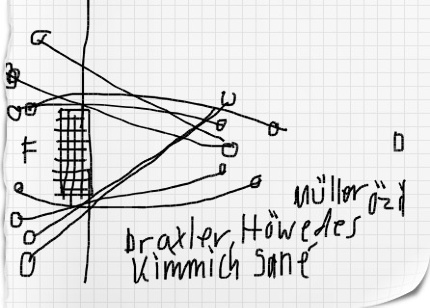 F
Müller özil
Draxler, Höwedes
Kimmich Sané